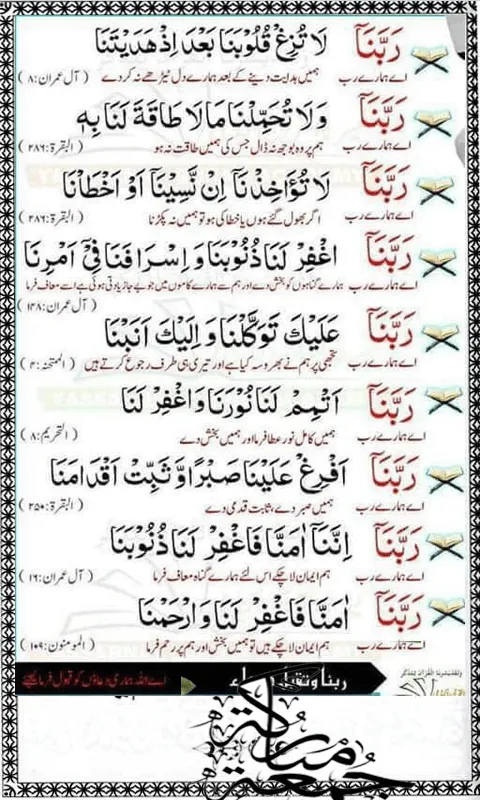 رَبَّنَا لَا تُزِغْ قُلُوْبَنَا بَعْدَ اِذْ هَدَيْتَنَا
اے ہمارے رب ہمیں ہدایت دینے کے بعد ہمارے دل ٹیڑھے نہ کر دے (آل عمران:۸)
رَبَّنَا وَلَا تُحَمِّلْنَا مَا لَا طَاقَةَ لَنَا بِهٖ
اے ہمارے رب ہم پر وہ بوجھ نہ ڈال جس کی ہمیں طاقت نہ ہو (البقرۃ:۲۸۶)
رَبَّنَا لَا تُؤَاخِذْنَا اِنْ نَّسِيْنَا اَوْ اَخْطَاْنَا
اے ہمارے رب اگر بھول گئے ہوں یا خطا کی ہو تو ہمیں نہ پکڑنا (البقرۃ:۲۸۶)
رَبَّنَا اغْفِرْ لَنَا ذُنُوْبَنَا وَاِسْرَافَنَا فِيْٓ اَمْرِنَا
اے ہمارے رب ہمارے گناہوں کو بخش دے اور ہم سے ہمارے کاموں میں جو بے جا زیادتی ہوئی ہے اسے معاف فرما
(آل عمران:۱۴۸)
رَبَّنَا عَلَيْكَ تَوَكَّلْنَا وَاِلَيْكَ اَنَبْنَا
اے ہمارے رب تجھی پر ہم نے بھروسہ کیا ہے اور تیری ہی طرف رجوع کرتے ہیں (الممتحنہ:۴)
رَبَّنَا اَتْمِمْ لَنَا نُوْرَنَا وَاغْفِرْ لَنَا
اے ہمارے رب ہمیں کامل نور عطا فرما اور ہمیں بخش دے (التحریم:۸)
رَبَّنَا اَفْرِغْ عَلَيْنَا صَبْرًا وَّثَبِّتْ اَقْدَامَنَا
اے ہمارے رب ہمیں صبر دے، ثابت قدمی دے (البقرۃ:۲۵۰)
رَبَّنَا اِنَّنَا اٰمَنَّا فَاغْفِرْ لَنَا ذُنُوْبَنَا
اے ہمارے رب ہم ایمان لا چکے اس لئے ہمارے گناہ معاف فرما (آل عمران:۱۶)
رَبَّنَا اٰمَنَّا فَاغْفِرْ لَنَا وَارْحَمْنَا
اے ہمارے رب ہم ایمان لا چکے ہیں تو ہمیں بخش اور ہم پر رحم فرما (المومنون:۱۰۹)
ربنا وتقبل دعاء اے اللہ ہماری دعاؤں کو قبول فرما لیجئے
جمعة مباركة